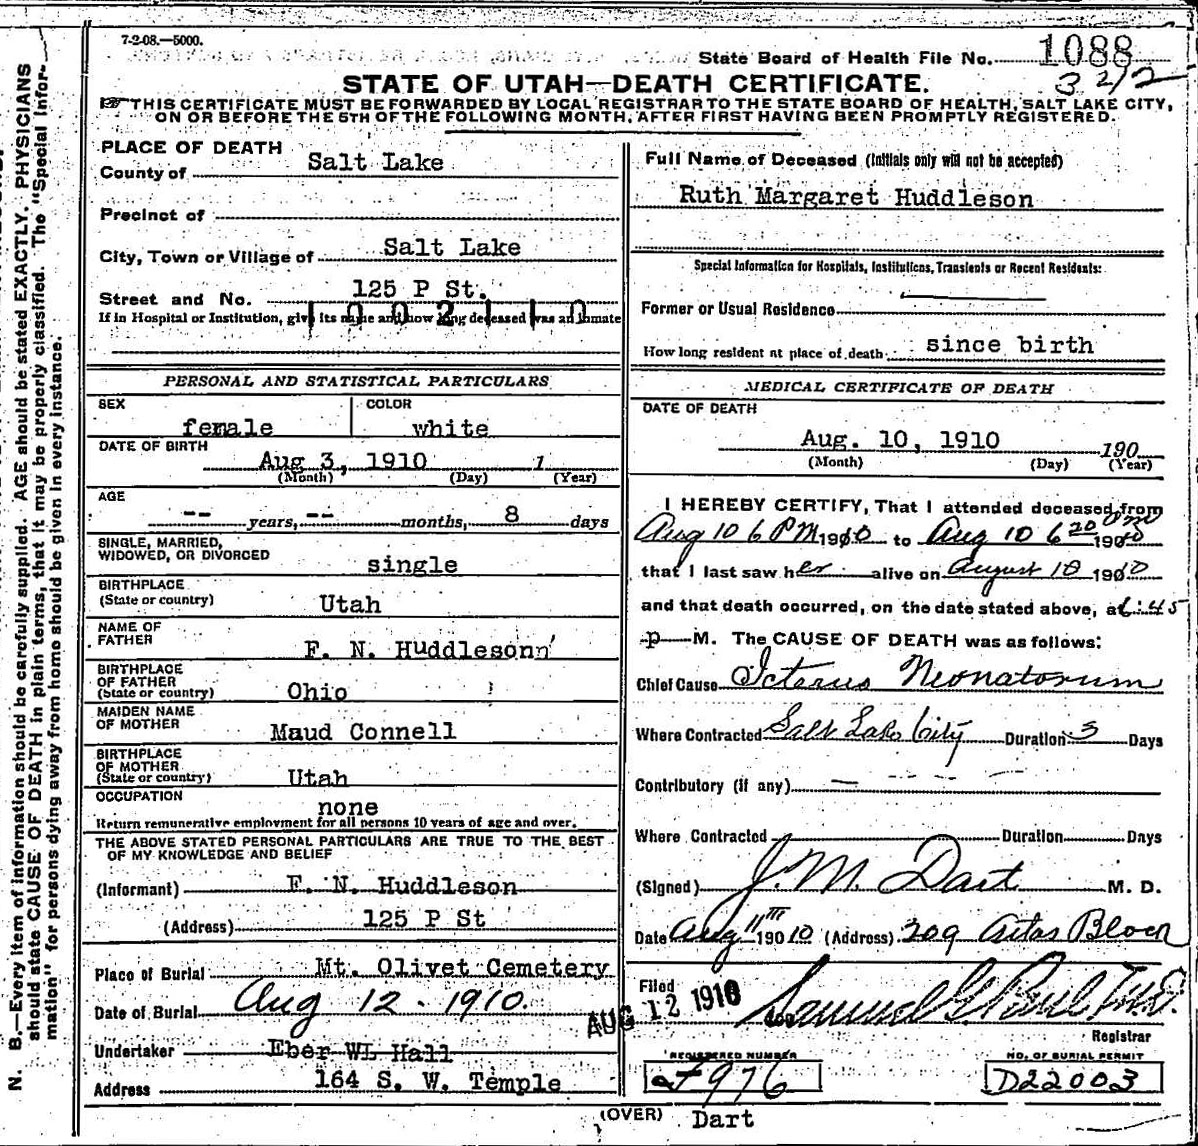 7-2-08.—5000.
State Board of Health File No. 1088
3212
STATE OF UTAH—DEATH CERTIFICATE.
THIS CERTIFICATE MUST BE FORWARDED BY LOCAL REGISTRAR TO THE STATE BOARD OF HEALTH, SALT LAKE CITY,
ON OR BEFORE THE 5TH OF THE FOLLOWING MONTH, AFTER FIRST HAVING BEEN PROMPTLY REGISTERED.
N. B.—Every item of information should be carefully supplied. AGE should be stated EXACTLY. PHYSICIANS
should state CAUSE OF DEATH in plain terms, that it may be properly classified. The "Special Infor-
mation" for persons dying away from home should be given in every instance.
PLACE OF DEATH
County of Salt Lake
Precinct of
City, Town or Village of Salt Lake
Street and No. 125 P St.
If in Hospital or Institution, give its name and how long deceased was an inmate
1002110
PERSONAL AND STATISTICAL PARTICULARS
SEX female COLOR white
DATE OF BIRTH
Aug 3, 1910 1
(Month) (Day) (Year)
AGE
-- years, -- months, 8 days
SINGLE, MARRIED,
WIDOWED, OR DIVORCED single
BIRTHPLACE
(State or country) Utah
NAME OF
FATHER F. N. Huddlesonn
BIRTHPLACE
OF FATHER
(State or country) Ohio
MAIDEN NAME
OF MOTHER Maud Connell
BIRTHPLACE
OF MOTHER
(State or country) Utah
OCCUPATION
none
Return remunerative employment for all persons 10 years of age and over.
THE ABOVE STATED PERSONAL PARTICULARS ARE TRUE TO THE BEST
OF MY KNOWLEDGE AND BELIEF
(Informant) F. N. Huddleson
(Address) 125 P St
Place of Burial Mt. Olivet Cemetery
Date of Burial Aug 12 - 1910.
Undertaker Eber WL Hall
Address 164 S. W. Temple
Full Name of Deceased (Initials only will not be accepted)
Ruth Margaret Huddleson
Special Information for Hospitals, Institutions, Transients or Recent Residents:
Former or Usual Residence
How long resident at place of death since birth
MEDICAL CERTIFICATE OF DEATH
DATE OF DEATH
Aug. 10, 1910 190
(Month) (Day) (Year)
I HEREBY CERTIFY, That I attended deceased from
Aug 10 6 PM 1910 to Aug 10 6 20 PM 1910
that I last saw her alive on August 10 1910
and that death occurred, on the date stated above, at 6:45
p M. The CAUSE OF DEATH was as follows:
Chief Cause Icterus Neonatorum
Where Contracted Salt Lake City Duration 3 Days
Contributory (if any) —
Where Contracted Duration Days
(Signed) J. M. Dart M. D.
Date Aug 11 1910 (Address) 309 Block
Filed AUG 12 1910 Samuel G. Paul M.D.
Registrar
REGISTERED NUMBER
976
NO. OF BURIAL PERMIT
D22003
(OVER) Dart